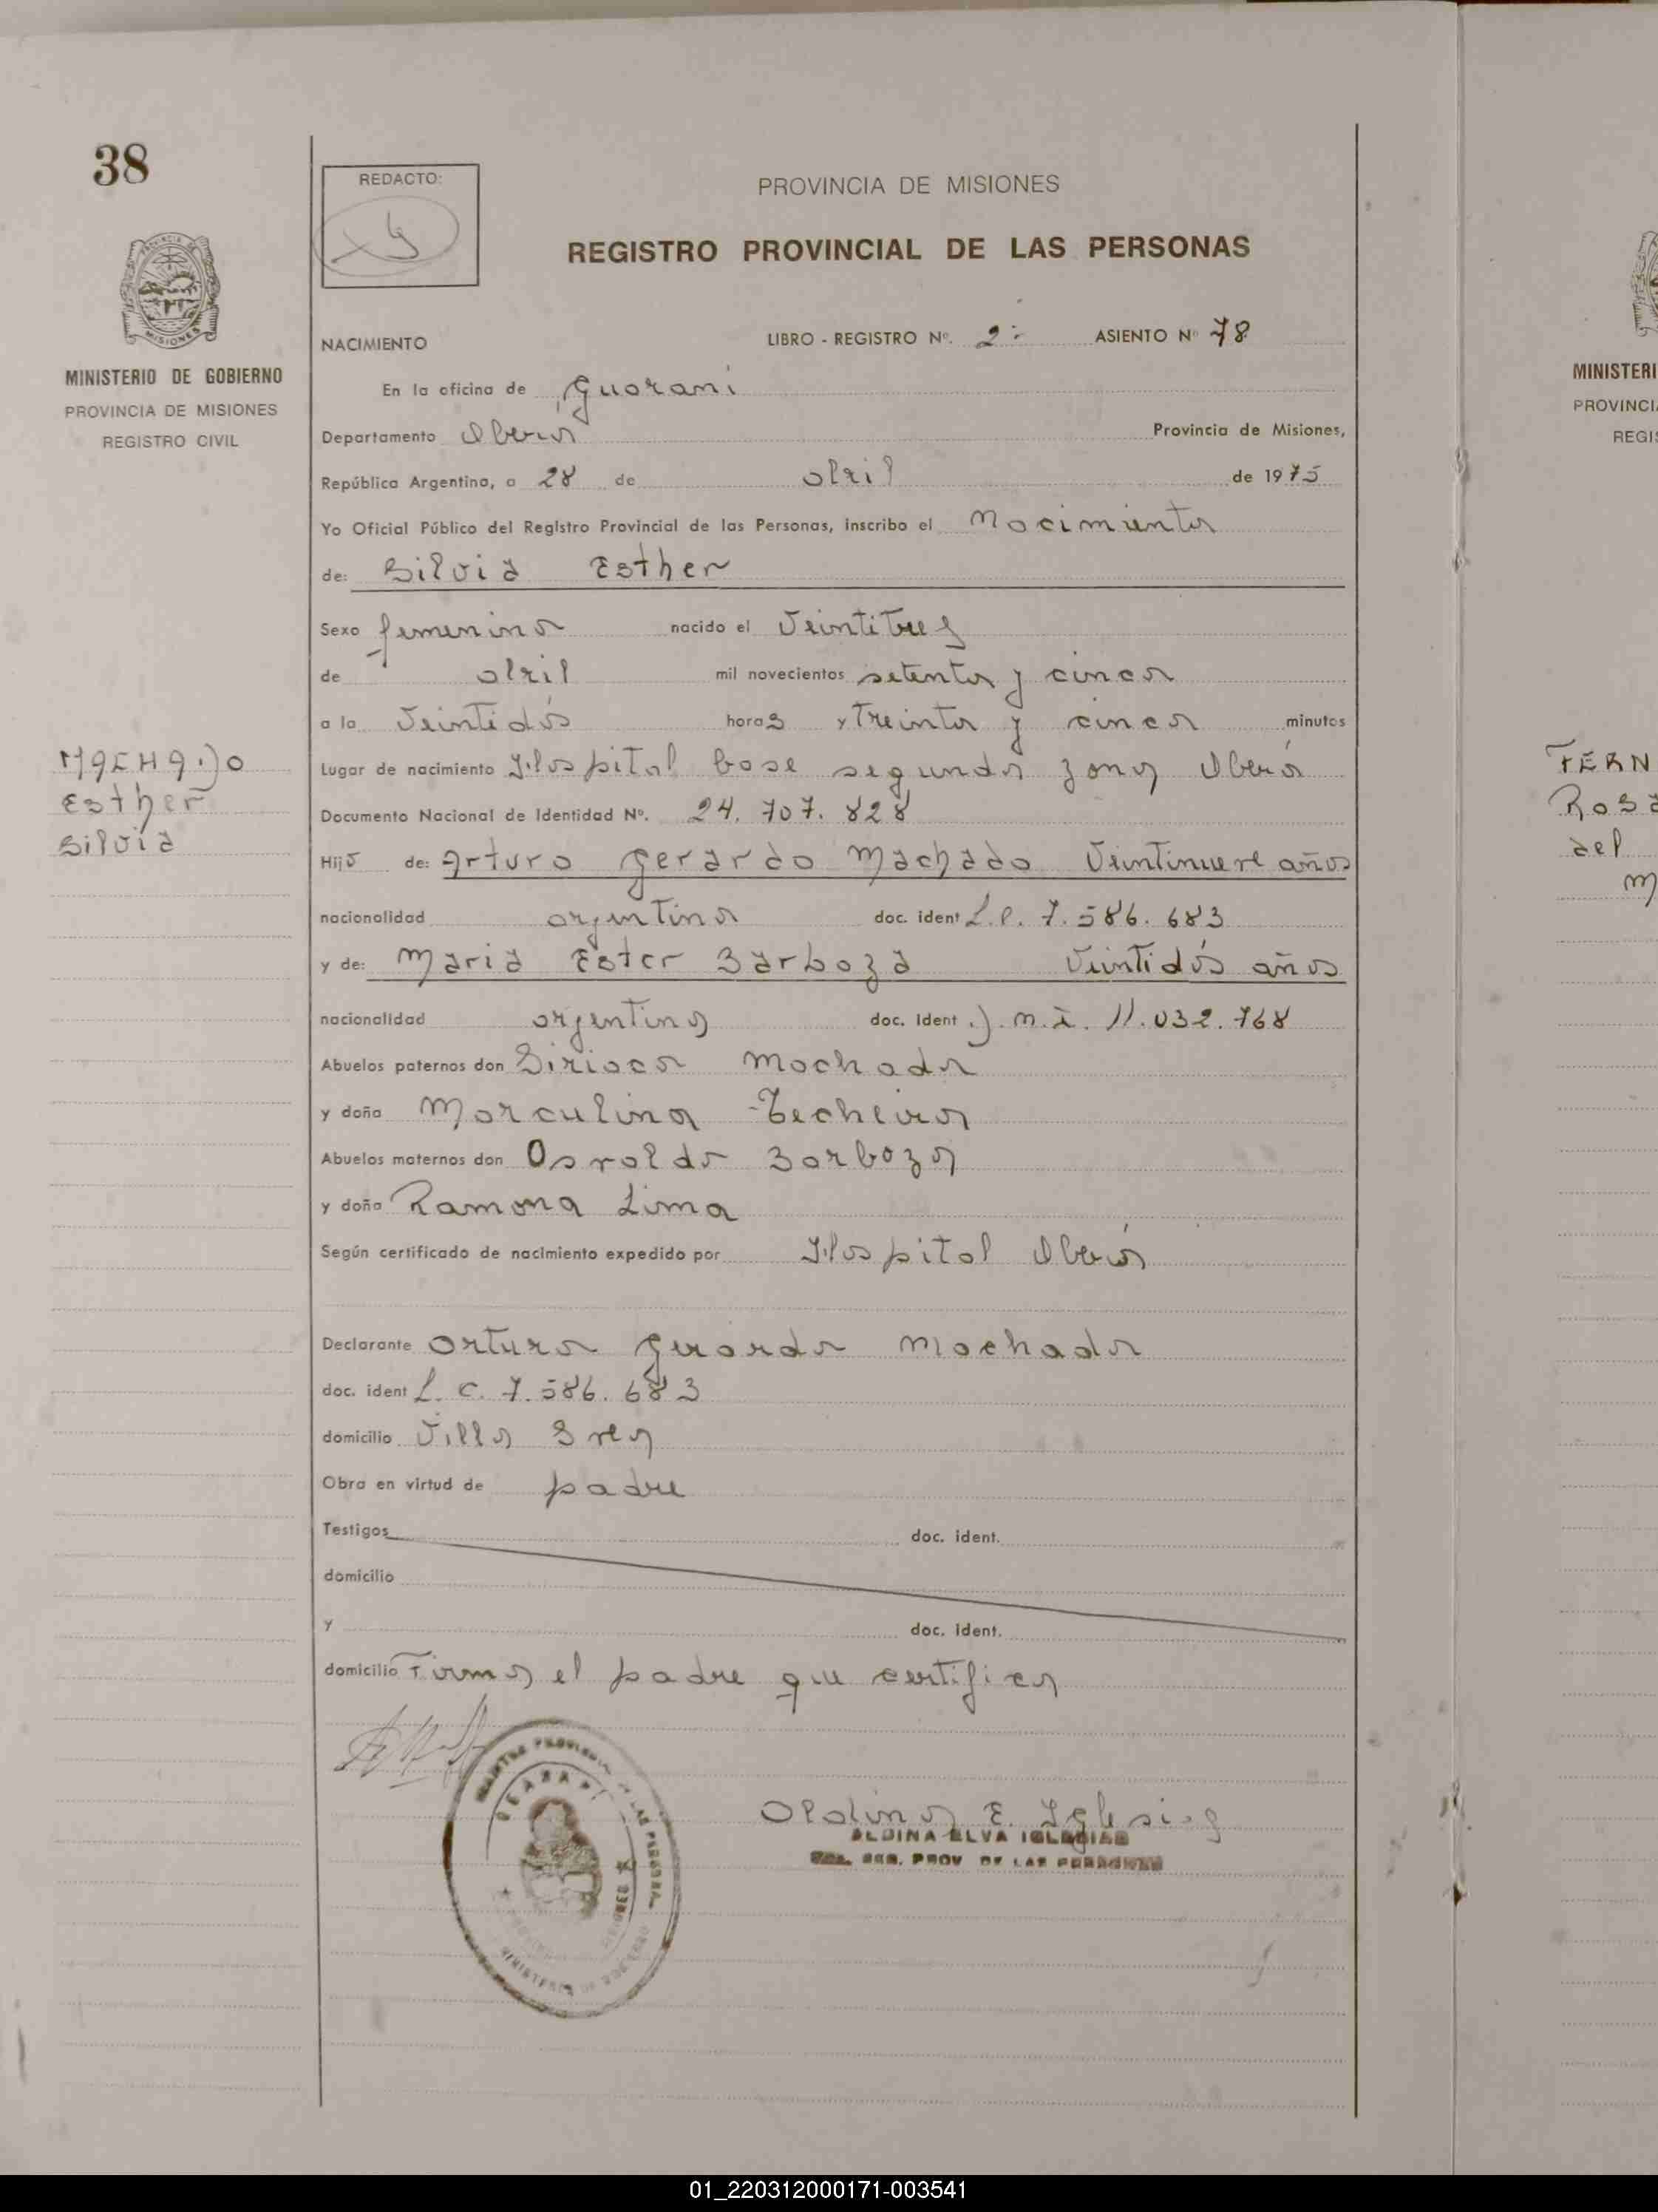 38
REDACTO:
PROVINCIA DE MISIONES
REGISTRO PROVINCIAL DE LAS PERSONAS
MISIONES
MINISTERIO DE GOBIERNO
PROVINCIA DE MISIONES
REGISTRO CIVIL
NACIMIENTO LIBRO - REGISTRO Nº. 2- ASIENTO Nº 78
En la oficina de Guarani
Departamento Oberá Provincia de Misiones,
República Argentina, a 28 de abril de 1975
Yo Oficial Público del Registro Provincial de las Personas, inscribo el Nacimiento
de: Silvia Esther
Sexo femenino nacido el Veintitres
de abril mil novecientos setenta y cinco
a la Veintidós horas y Treinta y cinco minutos
Lugar de nacimiento Hospital base segunda zona Oberá
Documento Nacional de Identidad Nº. 24.707.828
Hijo de: Arturo Gerardo Machado Veintinueve años
nacionalidad argentina doc. ident L.E. 7.586.683
y de: Maria Ester Barboza Veintidós años
nacionalidad argentina doc. ident D.N.I. 11.032.768
Abuelos paternos don Siriaco Machado
y doña Marculina Techeira
Abuelos maternos don Osvaldo Barboza
y doña Ramona Lima
Según certificado de nacimiento expedido por Hospital Oberá
Declarante Arturo Gerardo Machado
doc. ident L.E. 7.586.683
domicilio Villa Brea
Obra en virtud de padre
Testigos doc. ident.
domicilio
y doc. ident.
domicilio Firma el padre que certifica
Aldina E. Iglesias
ALDINA ELVA IGLESIAS
REG. PROV DE LAS PERSONAS
MACHADO
Esther
Silvia
MINISTERI
PROVINCI
REGI
FERN
Rosa
del
M
01_220312000171-003541